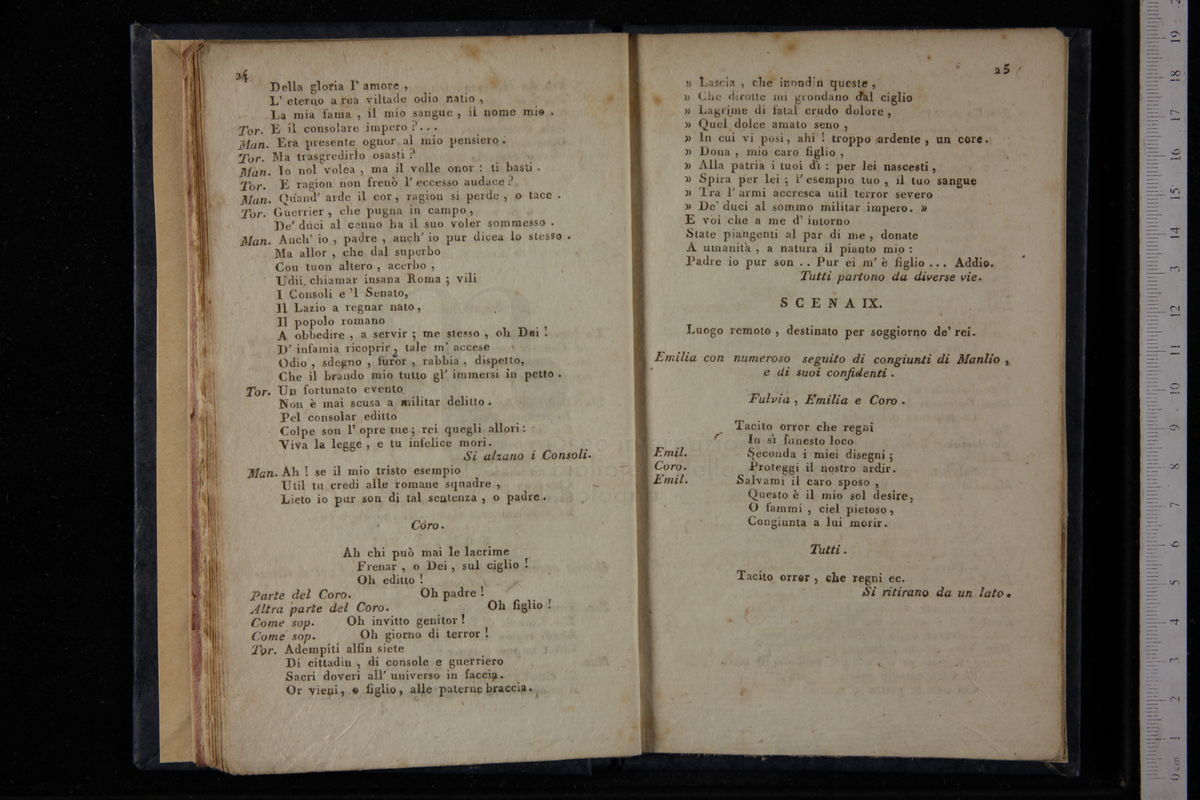 24
Della gloria l' amore ,
L' eterno a rea viltade odio natio ,
La mia fama , il mio sangue , il nome mio .
Tor. E il consolare impero ?...
Man. Era presente ognor al mio pensiero .
Tor. Ma trasgredirlo osasti ?
Man. Io nol volea , ma il volle onor : ti basti .
Tor. E ragion non frenò l' eccesso audace ?
Man. Quand' arde il cor , ragion si perde , o tace .
Tor. Guerrier , che pugna in campo ,
De' duci al cenno ha il suo voler sommesso .
Man. Anch' io , padre , anch' io pur dicea lo stesso .
Ma allor , che dal superbo
Con tuon altero , acerbo ,
Udii chiamar insana Roma ; vili
I Consoli e 'l Senato,
Il Lazio a regnar nato ,
Il popolo romano
A obbedire , a servir ; me stesso , oh Dei !
D' infamia ricoprir , tale m' accese
Odio , sdegno , furor , rabbia , dispetto,
Che il brando mio tutto gl' immersi in petto .
Tor. Un fortunato evento
Non è mai scusa a militar delitto .
Pel consolar editto
Colpe son l' opre tue ; rei quegli allori :
Viva la legge , e tu infelice mori.
Si alzano i Consoli.
Man. Ah ! se il mio tristo esempio
Util tu credi alle romane squadre ,
Lieto io pur son di tal sentenza , o padre .
Coro.
Ah chi può mai le lacrime
Frenar , o Dei , sul ciglio !
Oh editto !
Parte del Coro. Oh padre !
Altra parte del Coro. Oh figlio !
Come sop. Oh invitto genitor !
Come sop. Oh giorno di terror !
Tor. Adempiti alfin siete
Di cittadin , di console e guerriero
Sacri doveri all' universo in faccia .
Or vieni, o figlio , alle paterne braccia .
25
» Lascia , che inondin queste ,
» Che dirotte mi grondano dal ciglio
» Lagrime di fatal crudo dolore ,
» Quel dolce amato seno ,
» In cui vi posi, ahi ! troppo ardente , un core.
» Dona , mio caro figlio ,
» Alla patria i tuoi dì : per lei nascesti ,
» Spira per lei ; l' esempio tuo , il tuo sangue
» Tra l' armi accresca util terror severo
» De' duci al sommo militar impero. »
E voi che a me d' intorno
State piangenti al par di me , donate
A umanità , a natura il pianto mio :
Padre io pur son .. Pur ei m' è figlio ... Addio.
Tutti partono da diverse vie.
SCENA IX.
Luogo remoto , destinato per soggiorno de' rei.
Emilia con numeroso seguito di congiunti di Manlio ,
e di suoi confidenti .
Fulvia , Emilia e Coro .
Tacito orror che regni
In sì funesto loco
Emil. Seconda i miei disegni ;
Coro. Proteggi il nostro ardir.
Emil. Salvami il caro sposo ,
Questo è il mio sol desire,
O fammi , ciel pietoso ,
Congiunta a lui morir.
Tutti .
Tacito orror , che regni ec.
Si ritirano da un lato.
0 cm 1 2 3 4 5 6 7 8 9 10 11 12 13 14 15 16 17 18 19